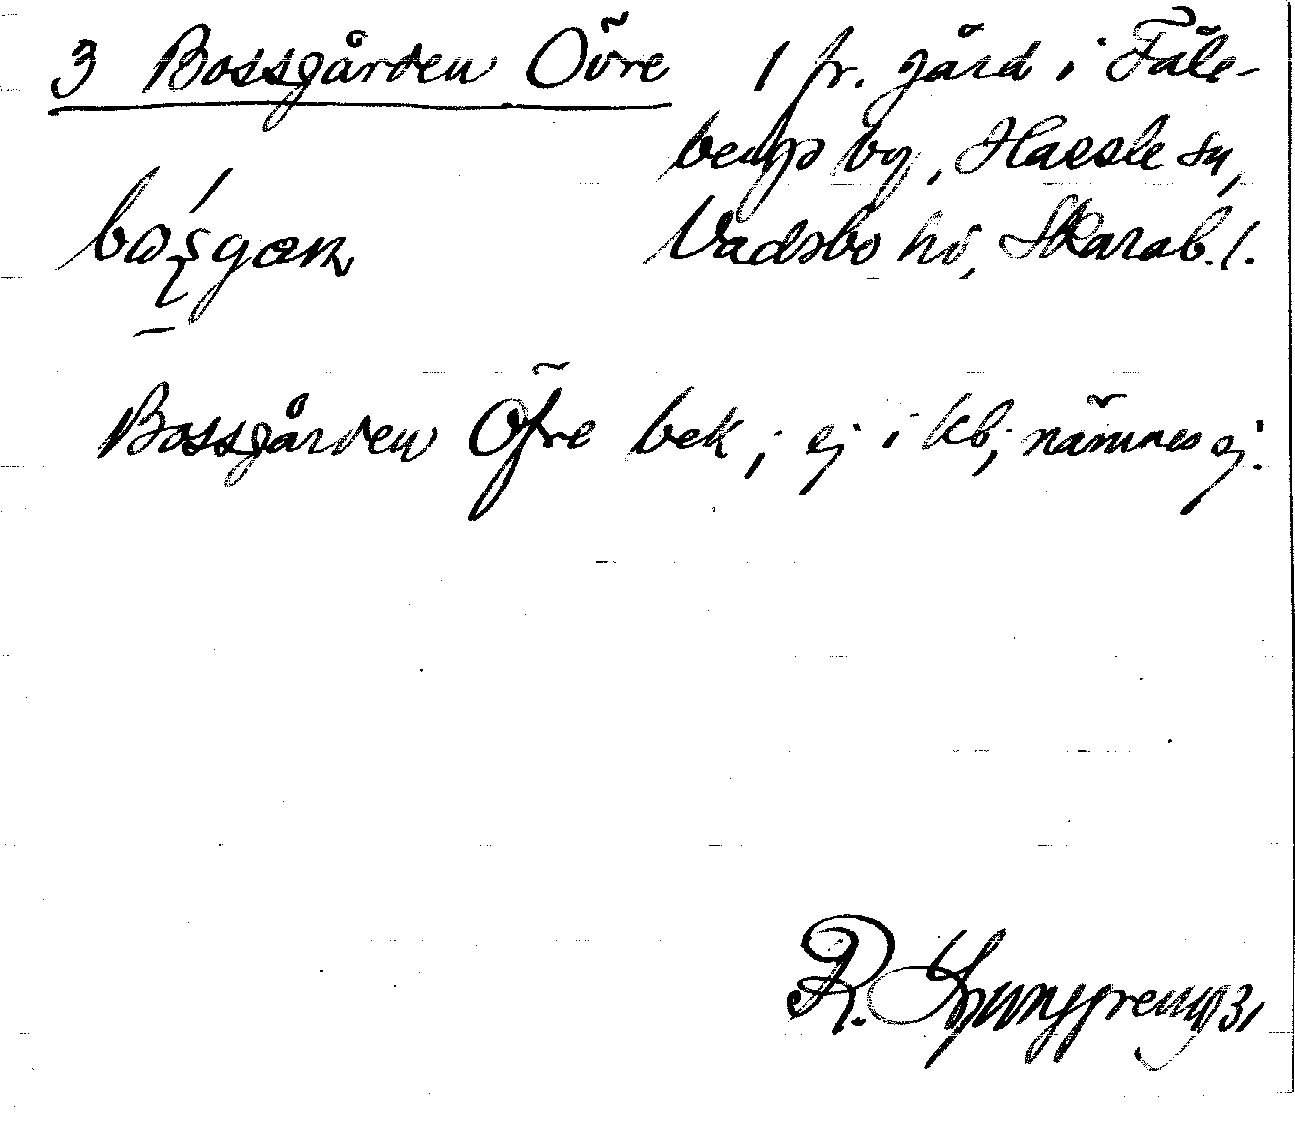 3 Bossgården Övre
1 fr. gård i Fäle-
bergs by, Hassle sn,
Vadsbo hd, Skarab. l.
Bossgården Öfre bek; ej i kb; nämnes ej.
R. Ljunggren 1931